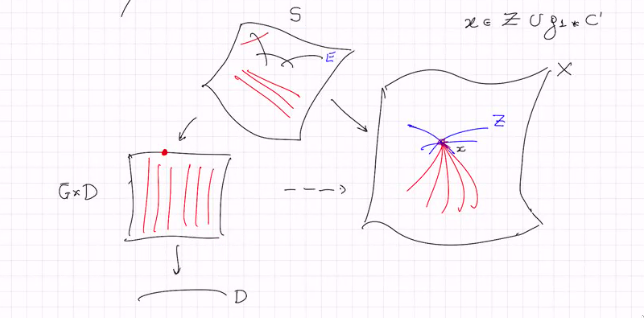 S
x ∈ Z ∪ g₁*C'
E
X
Z
x
G×D
D